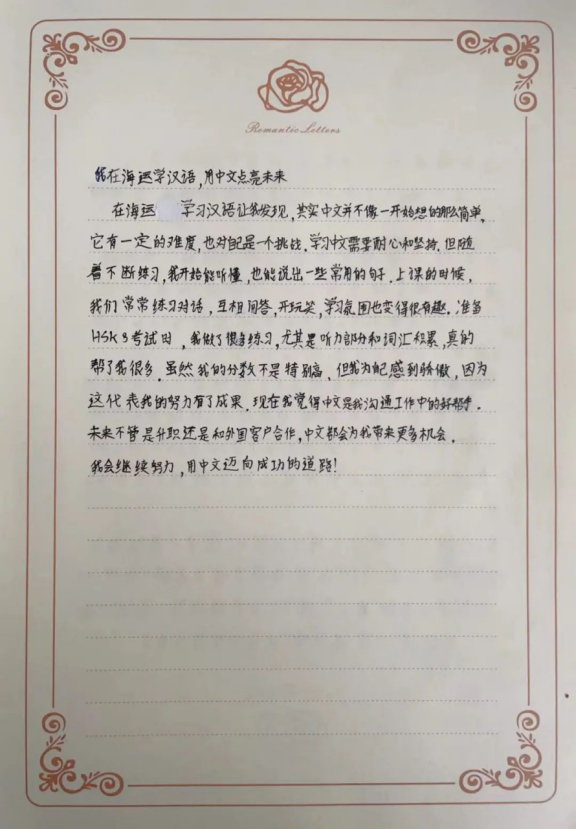 Romantic Letters
我在海运学汉语,用中文点亮未来
在海运 学习汉语让我发现,其实中文并不像一开始想的那么简单,
它有一定的难度,也对自己是一个挑战。学习中文需要耐心和坚持。但随
着不断练习,我开始能听懂,也能说出一些常用的句子。上课的时候,
我们常常练习对话,互相问答,开玩笑,学习氛围也变得很有趣。准备
HSK3考试时,我做了很多练习,尤其是听力部分和词汇积累,真的
帮了我很多。虽然我的分数不是特别高,但我为自己感到骄傲,因为
这代表我的努力有了成果。现在我觉得中文是我沟通工作中的好帮手。
未来不管是升职还是和外国客户合作,中文都会为我带来更多机会。
我会继续努力,用中文迈向成功的道路!